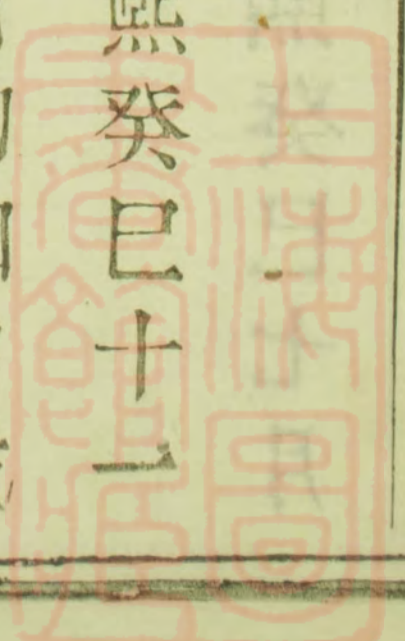 熙癸巳十一
上海圖
書館藏